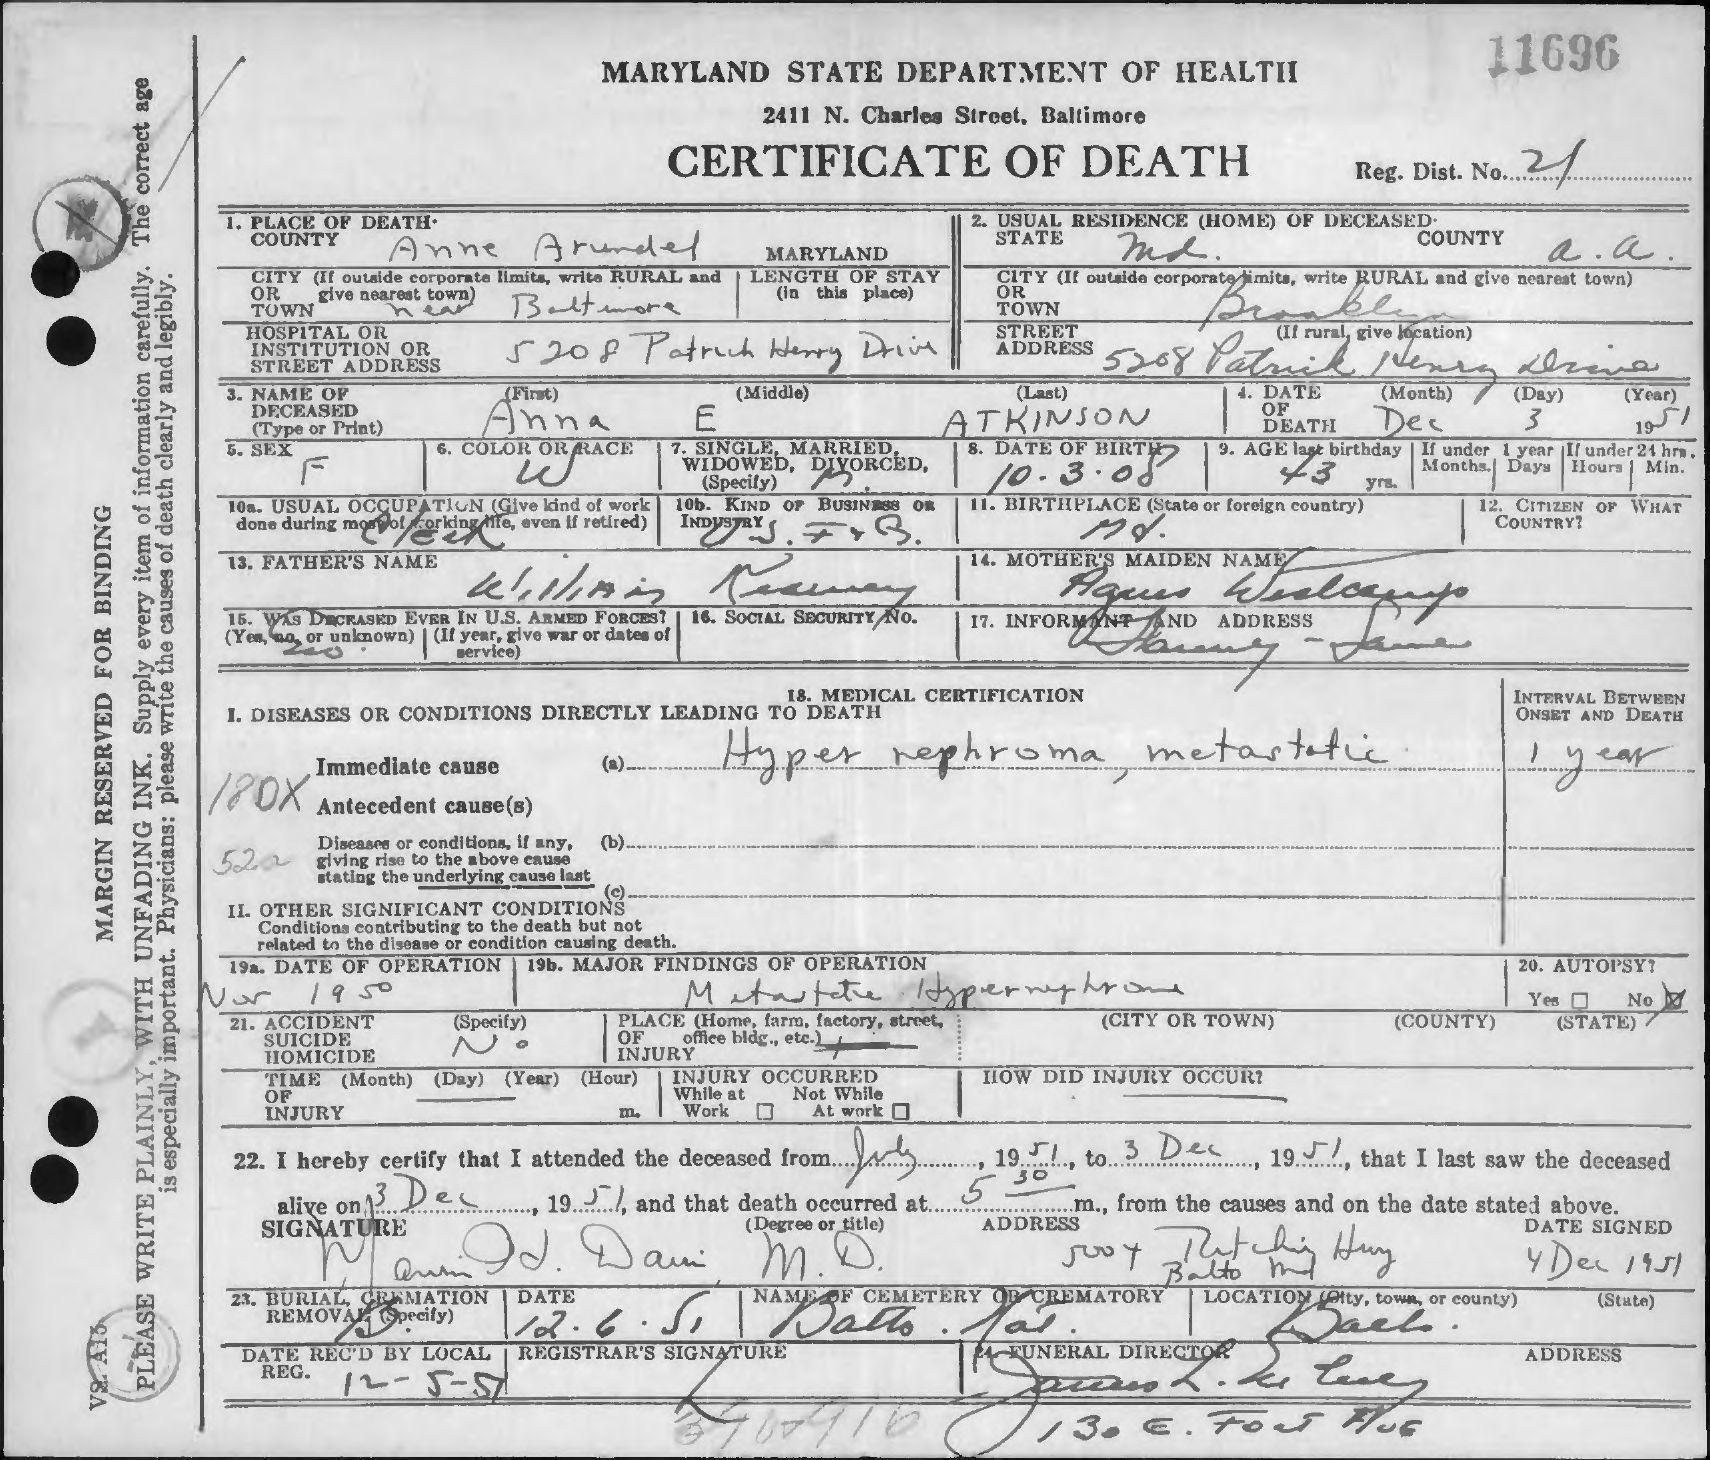 11696
MARYLAND STATE DEPARTMENT OF HEALTH
2411 N. Charles Street, Baltimore
CERTIFICATE OF DEATH
Reg. Dist. No. 21
1. PLACE OF DEATH· COUNTY Anne Arundel MARYLAND
CITY (If outside corporate limits, write RURAL and give nearest town) OR TOWN near Baltimore
LENGTH OF STAY (in this place)
HOSPITAL OR INSTITUTION OR STREET ADDRESS 5208 Patrick Henry Drive
2. USUAL RESIDENCE (HOME) OF DECEASED· STATE Md. COUNTY A.A.
CITY (If outside corporate limits, write RURAL and give nearest town) OR TOWN Brooklyn
STREET ADDRESS (If rural, give location) 5208 Patrick Henry Drive
3. NAME OF DECEASED (Type or Print) (First) Anna (Middle) E (Last) ATKINSON
4. DATE OF DEATH (Month) Dec (Day) 3 (Year) 1951
5. SEX F
6. COLOR OR RACE W
7. SINGLE, MARRIED, WIDOWED, DIVORCED, (Specify) M.
8. DATE OF BIRTH 10.3.08
9. AGE last birthday 43 yrs.
If under 1 year Months. Days
If under 24 hrs. Hours Min.
10a. USUAL OCCUPATION (Give kind of work done during most of working life, even if retired) Clerk
10b. KIND OF BUSINESS OR INDUSTRY U.S. F & B.
11. BIRTHPLACE (State or foreign country) Md.
12. CITIZEN OF WHAT COUNTRY?
13. FATHER'S NAME William
14. MOTHER'S MAIDEN NAME Agnes Westcamp
15. WAS DECEASED EVER IN U.S. ARMED FORCES? (Yes, no, or unknown) no (If year, give war or dates of service)
16. SOCIAL SECURITY NO.
17. INFORMANT AND ADDRESS - Same
18. MEDICAL CERTIFICATION
I. DISEASES OR CONDITIONS DIRECTLY LEADING TO DEATH
INTERVAL BETWEEN ONSET AND DEATH
Immediate cause (a) Hyper nephroma, metastatic 1 year
180X Antecedent cause(s)
52a Diseases or conditions, if any, giving rise to the above cause stating the underlying cause last (b)
(c)
II. OTHER SIGNIFICANT CONDITIONS
Conditions contributing to the death but not related to the disease or condition causing death.
19a. DATE OF OPERATION Nov 1950
19b. MAJOR FINDINGS OF OPERATION Metastatic Hypernephroma
20. AUTOPSY? Yes No X
21. ACCIDENT SUICIDE HOMICIDE (Specify) No
PLACE (Home, farm, factory, street, OF office bldg., etc.) INJURY
(CITY OR TOWN) (COUNTY) (STATE)
TIME (Month) (Day) (Year) (Hour) OF INJURY m.
INJURY OCCURRED While at Work Not While At work
HOW DID INJURY OCCUR?
22. I hereby certify that I attended the deceased from July, 1951, to 3 Dec, 1951, that I last saw the deceased
alive on 3 Dec, 1951, and that death occurred at 5 30 m., from the causes and on the date stated above.
SIGNATURE (Degree or title) ADDRESS DATE SIGNED
Marvin H. Davis M.D. 5004 Ritchie Hwy Balto Md 4 Dec 1951
23. BURIAL, CREMATION REMOVAL (Specify) B.
DATE 12.6.51
NAME OF CEMETERY OR CREMATORY Balto. Nat.
LOCATION (City, town, or county) (State) Balto.
DATE REC'D BY LOCAL REG. 12-5-51
REGISTRAR'S SIGNATURE
24. FUNERAL DIRECTOR ADDRESS
130 E. Fort Ave
MARGIN RESERVED FOR BINDING
PLEASE WRITE PLAINLY, WITH UNFADING INK. Supply every item of information carefully. The correct age
is especially important. Physicians: please write the causes of death clearly and legibly.
VS. A15